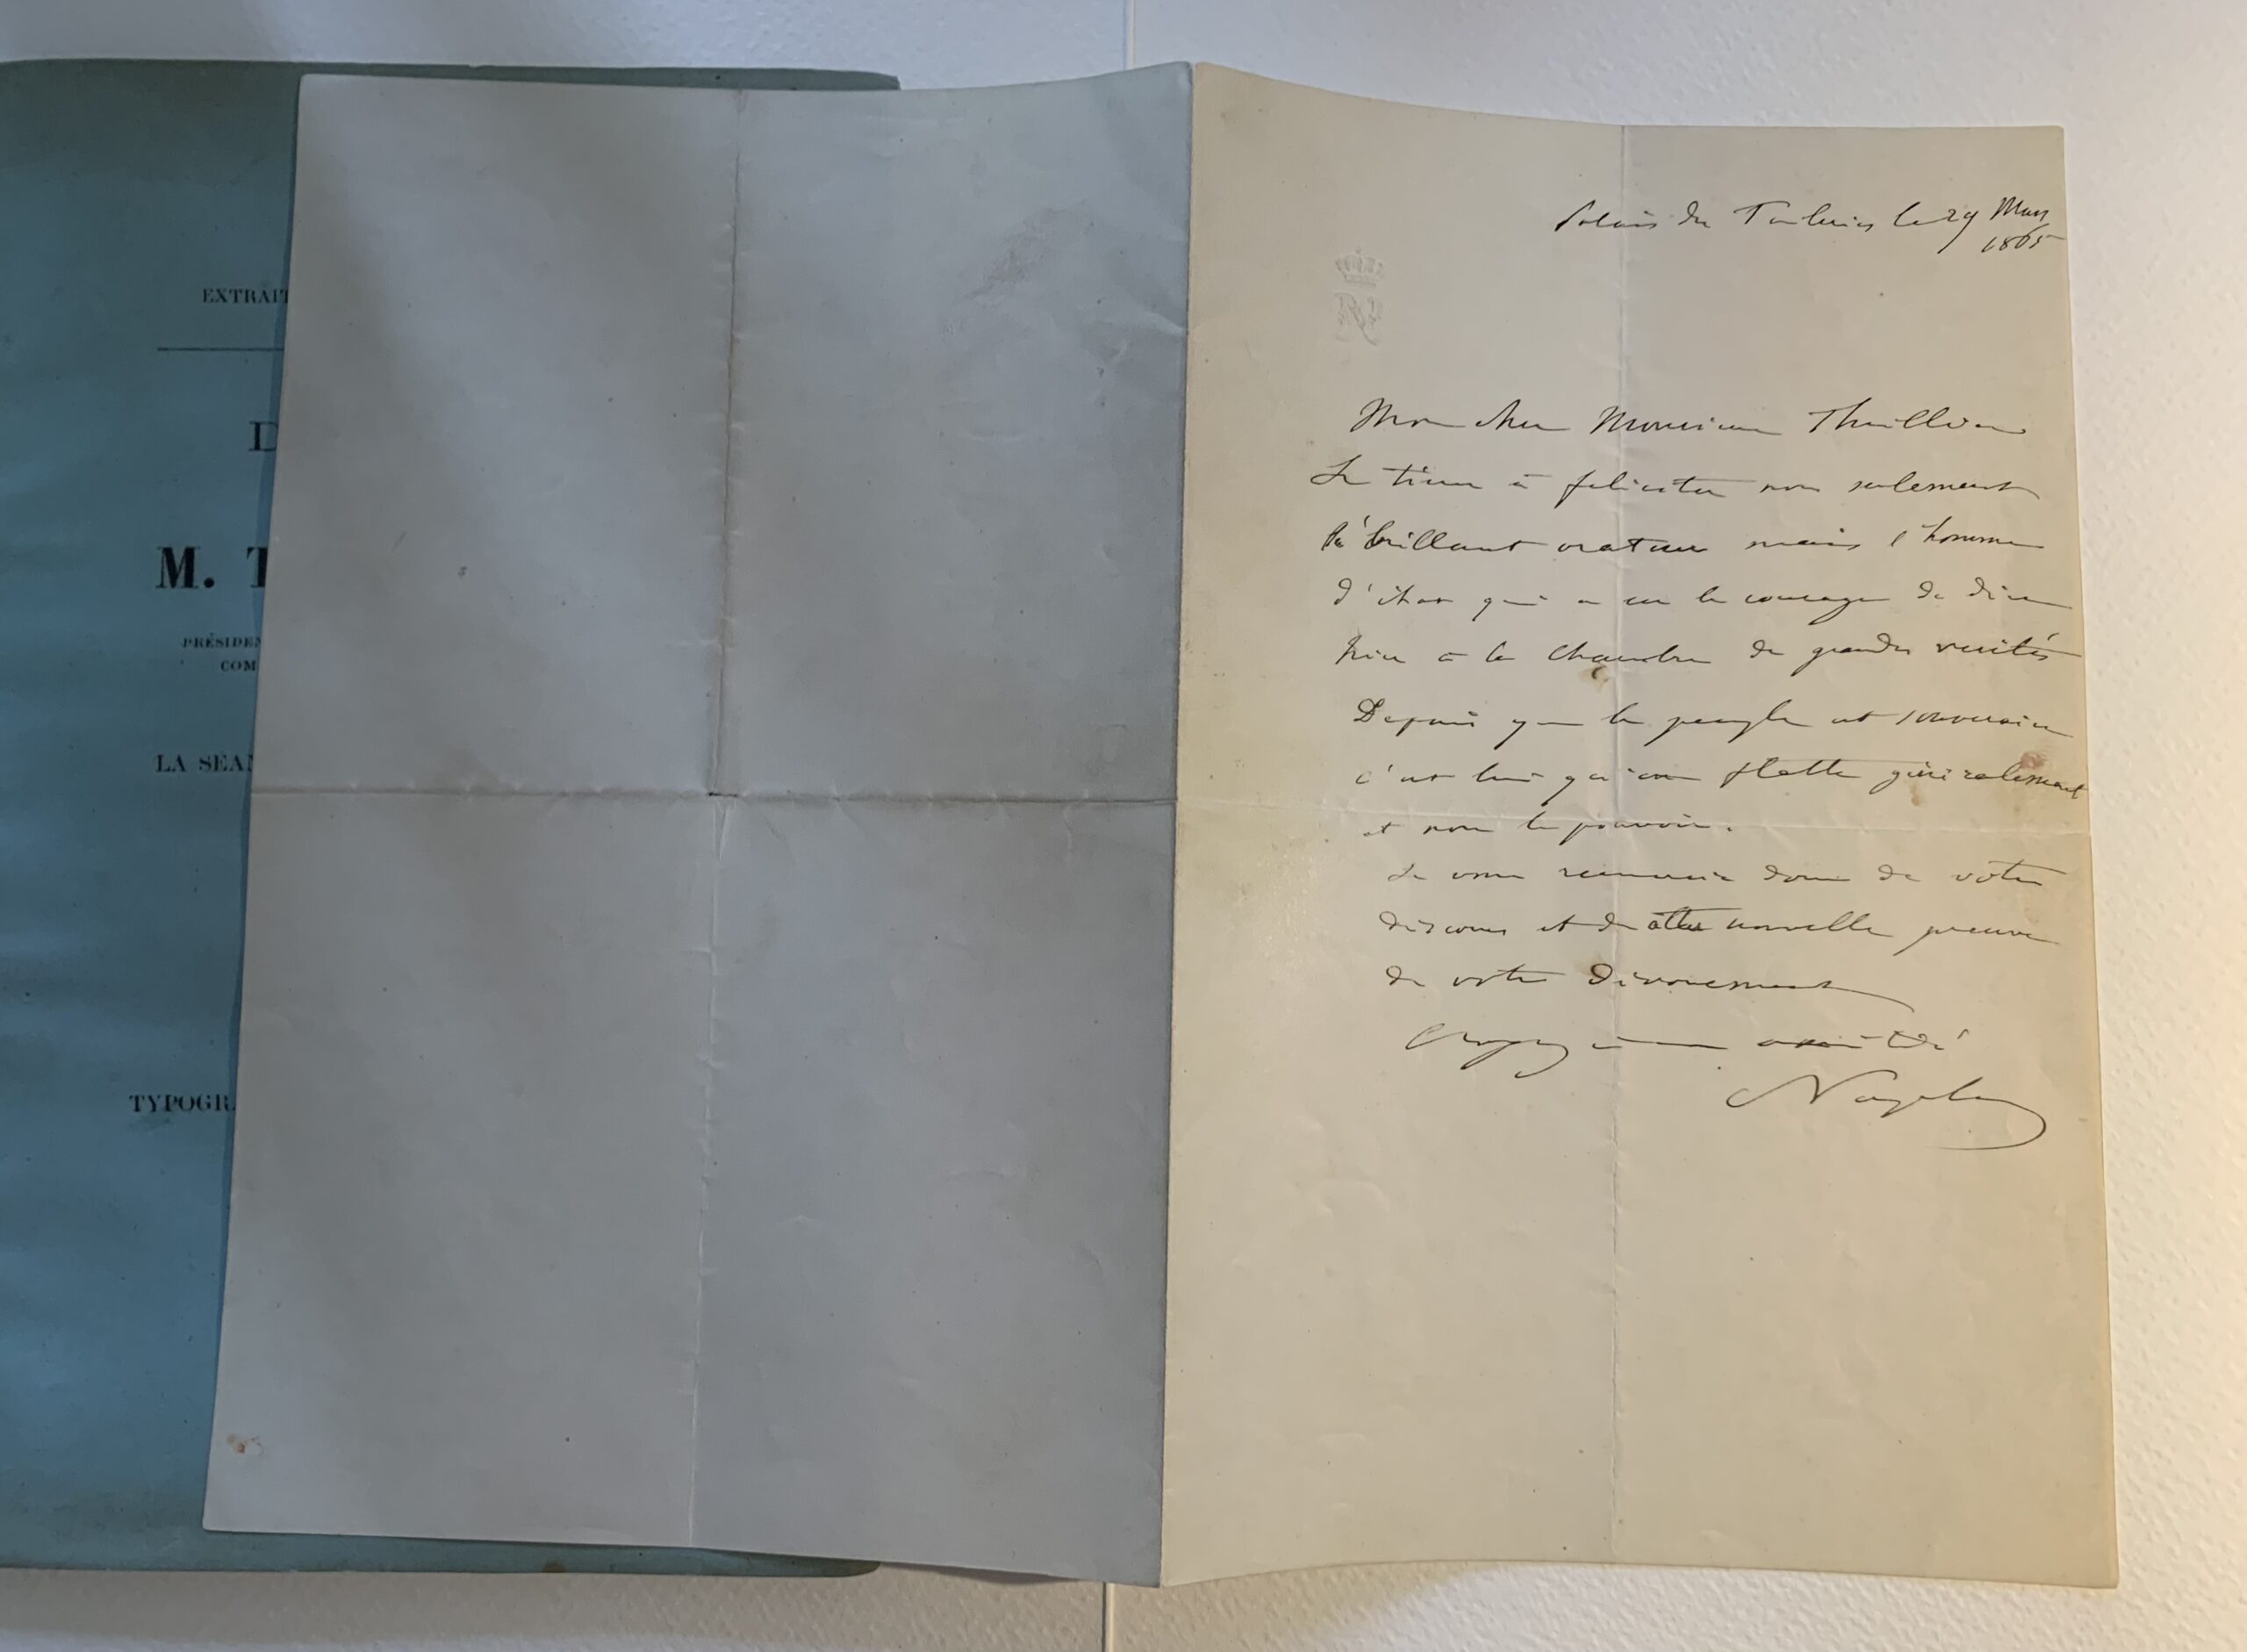 EXTRAIT
D
M. T
PRÉSIDEN
COM
LA SÉAN
TYPOGR
Palais des Tuileries le 29 Mars
1865
Mon cher Monsieur Thuillier
Je tiens à feliciter non seulement
le brillant orateur mais l'homme
d'état qui a eu le courage de dire
hier à la Chambre de grandes verités
Depuis que le peuple est souverain
c'est lui qu'on flatte généralement
et non le pouvoir.
Je vous remercie donc de votre
discours et de cette nouvelle preuve
de votre dévouement
Croyez à mon amitié
Napoléon